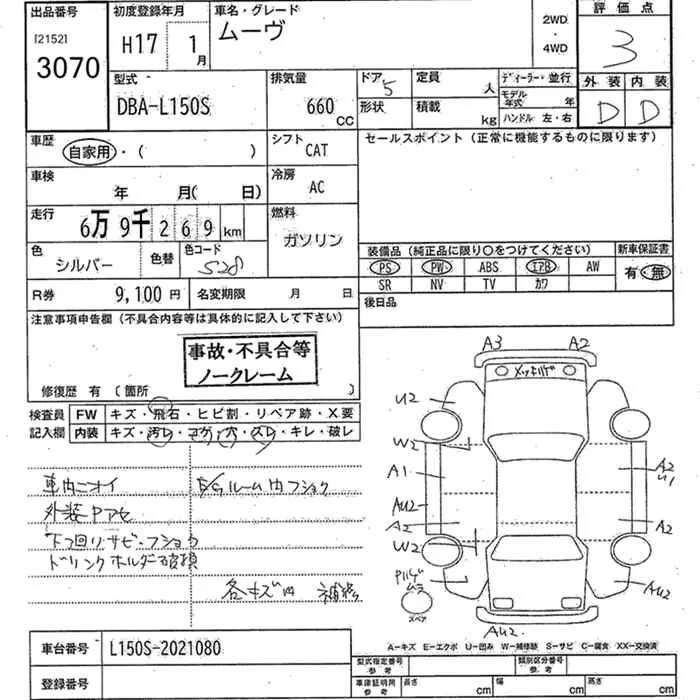 出品番号 初度登録年月 車名・グレード 2WD 評価点
[2152] H17 1月 ムーヴ ・ 3
3070 4WD
外装 内装
D D
型式 排気量 ドア 5 定員 人 ディーラー・並行
DBA-L150S 660 CC 形状 積載 kg モデル年式 年
ハンドル 左・右
車歴 自家用・( ) シフト CAT セールスポイント (正常に機能するものに限ります)
車検 年 月( 日) 冷房 AC
走行 6万9千269km 燃料 ガソリン
色 シルバー 色替 色コード S28
装備品 (純正品に限り○をつけてください) 新車保証書
PS PW ABS エアB AW 有・無
SR NV TV カワ
R券 9,100円 名変期限 月 日 後日品
注意事項申告欄 (不具合内容等は具体的に記入して下さい)
事故・不具合等
ノークレーム
修復歴 有 〔箇所 〕
検査員 FW キズ・飛石・ヒビ割・リペア跡・X要
記入欄 内装 キズ・汚レ・コゲ・穴・スレ・キレ・破レ
車内ニオイ E/Gルーム内フショク
外装ヤケアセ
下回リサビ・フショク
ドリンクホルダー破損
各キズ凹 補修
A3 A2
U2
W2
A1 A2
U1
AU2
A2 A2
W2
AU2
スペア
AU2
A=キズ E=エクボ U=凹み W=補修跡 S=サビ C=腐食 XX=交換済
車台番号 L150S-2021080
登録番号
型式指定番号 参考 類別区分番号 参考
車庫証明用 参考 長さ cm 幅 cm 高さ cm